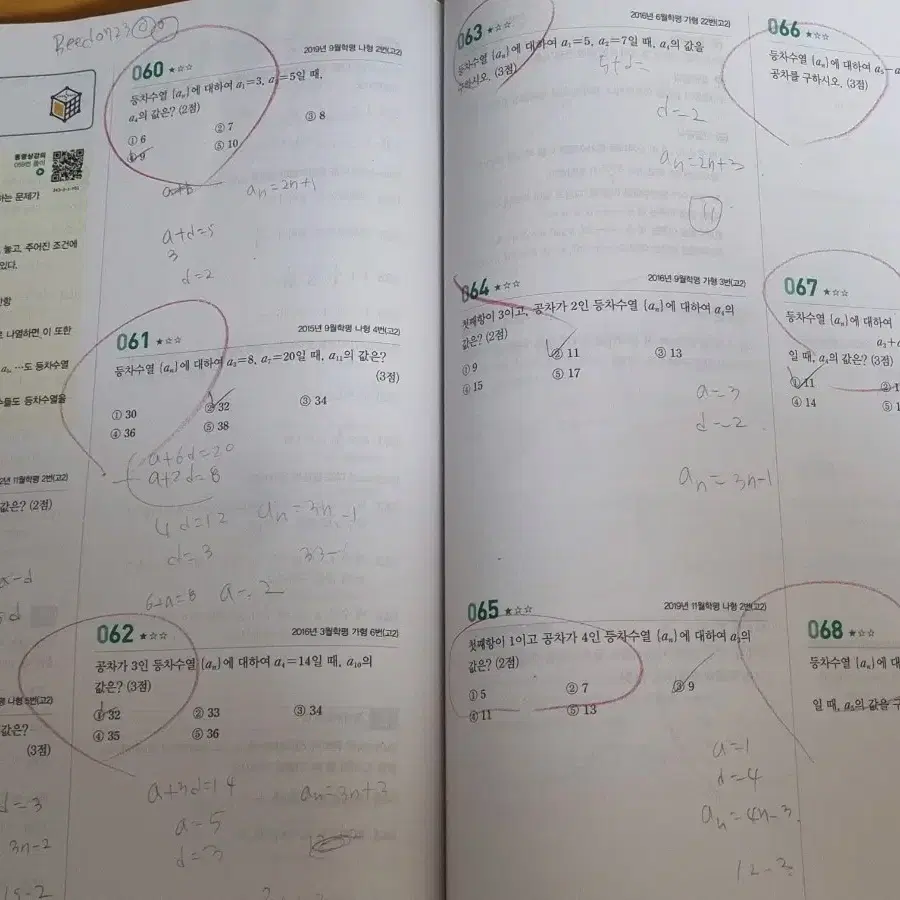 060 ★☆☆
2019년 9월학평 나형 2번(고2)
등차수열 {aₙ}에 대하여 a₁=3, a₂=5일 때,
a₄의 값은? (2점)
① 6 ② 7 ③ 8
④ 9 ⑤ 10
aₙ=2n+1
a+d=5
3
d=2
동영상강의
하는 문제가
놓고, 주어진 조건에
있다.
나열하면 이 또한
…도 등차수열
수들도 등차수열을
061 ★☆☆
2015년 9월학평 나형 4번(고2)
등차수열 {aₙ}에 대하여 a₃=8, a₇=20일 때, a₁₁의 값은?
(3점)
① 30 ② 32 ③ 34
④ 36 ⑤ 38
a+6d=20
a+2d=8
4d=12 aₙ=3n-1
d=3
6+a=8 a=2
11월학평 2번(고2)
값은? (2점)
062 ★☆☆
2016년 3월학평 가형 6번(고2)
공차가 3인 등차수열 {aₙ}에 대하여 a₄=14일 때, a₁₀의
값은? (3점)
① 32 ② 33 ③ 34
④ 35 ⑤ 36
a+3d=14 aₙ=3n+2
a=5
d=3
나형 5번(고2)
값은?
(3점)
d=3
3n-2
063 ★☆☆
2016년 6월학평 22번(고2)
등차수열 {aₙ}에 대하여 a₁=5, a₂=7일 때, a₄의 값을
구하시오. (3점)
5+d=
d=2
aₙ=2n+3
11
064 ★☆☆
2016년 9월학평 가형 3번(고2)
첫째항이 3이고, 공차가 2인 등차수열 {aₙ}에 대하여 a₅의
값은? (2점)
① 9 ② 11 ③ 13
④ 15 ⑤ 17
a=3
d=2
aₙ=3n-1
065 ★☆☆
2019년 11월학평 나형 2번(고2)
첫째항이 1이고 공차가 4인 등차수열 {aₙ}에 대하여 a₃의
값은? (2점)
① 5 ② 7 ③ 9
④ 11 ⑤ 13
a=1
d=4
aₙ=4n-3
12-3
066 ★☆☆
등차수열 {aₙ}에 대하여
공차를 구하시오. (3점)
067 ★☆☆
등차수열 {aₙ}에 대하여
일 때, a₁의 값은? (3점)
① 11
④ 14
068 ★☆☆
등차수열 {aₙ}에 대
일 때, a₅의 값을 구